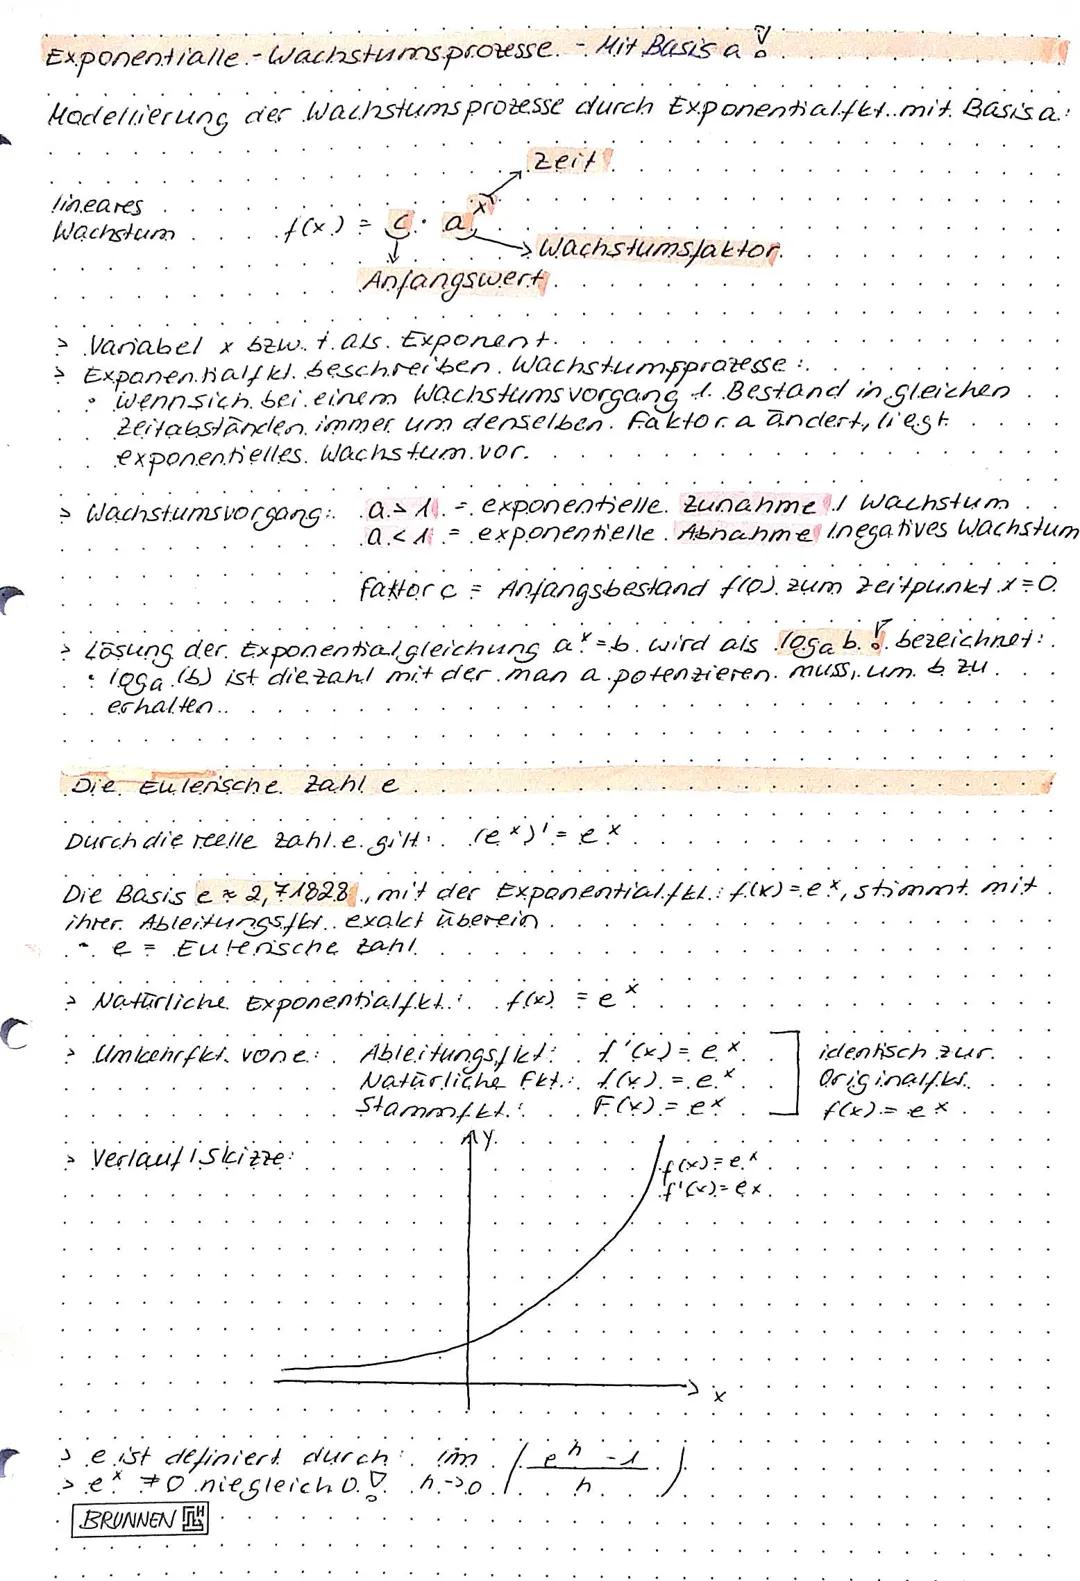 Exponentialle - Wachstumsprozesse - Mit Basis a !
Modellierung der Wachstumsprozesse durch Exponentialfkt. mit Basis a:
Zeit
lineares
Wachstum
f(x) = c · a^x
Wachstumsfaktor
Anfangswert
> Variabel x bzw. t als Exponent.
> Exponentialfkt. beschreiben Wachstumsprozesse:
• wenn sich bei einem Wachstumsvorgang 1. Bestand in gleichen
Zeitabständen immer um denselben Faktor a ändert, liegt
exponentielles Wachstum vor.
> Wachstumsvorgang: a > 1 = exponentielle Zunahme / Wachstum
a < 1 = exponentielle Abnahme / negatives Wachstum
Faktor c = Anfangsbestand f(0) zum Zeitpunkt x=0.
> Lösung der Exponentialgleichung a^x = b wird als log_a b ! bezeichnet:
• log_a (b) ist die Zahl mit der man a potenzieren muss, um b zu
erhalten.
Die Eulerische Zahl e
Durch die reelle Zahl e gilt: (e^x)' = e^x
Die Basis e ≈ 2,71828, mit der Exponentialfkt.: f(x) = e^x, stimmt mit
ihrer Ableitungsfkt. exakt überein
• e = Eulerische Zahl
> Natürliche Exponentialfkt.: f(x) = e^x
> Umkehrfkt. von e: Ableitungsfkt: f'(x) = e^x
Natürliche Fkt.: f(x) = e^x
Stammfkt.: F(x) = e^x
identisch zur
Originalfkt.
f(x) = e^x
> Verlauf / Skizze:
y
f(x) = e^x
f'(x) = e^x
x
> e ist definiert durch: lim h->0 ( (e^h - 1) / h )
> e^x ≠ 0 nie gleich 0 !
BRUNNEN